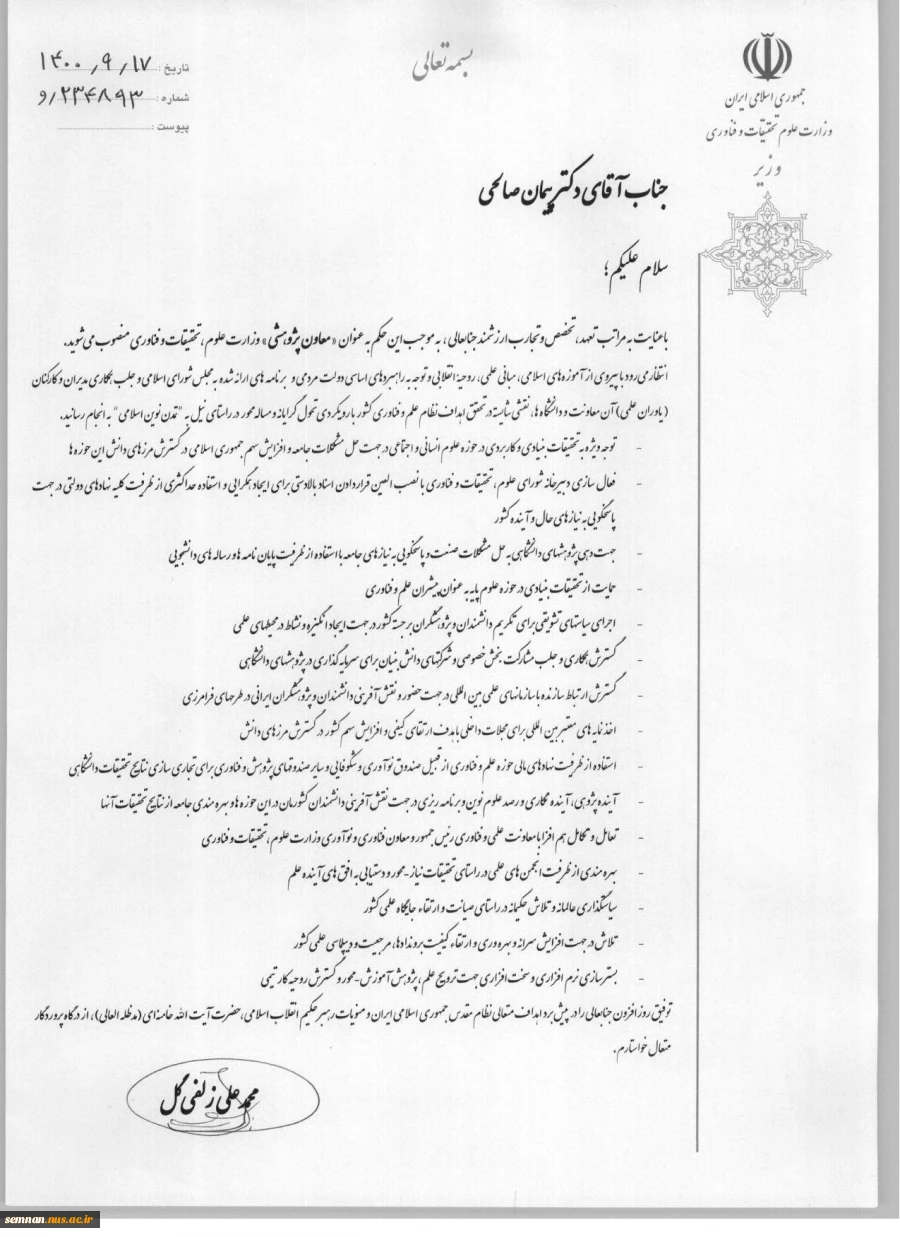 بسمه تعالی
جمهوری اسلامی ایران
وزارت علوم تحقیقات و فناوری
وزیر
تاریخ : ۱۴۰۰٫۹٫۱۷
شماره : ۲۳۴۸۹۳/و
پیوست :
جناب آقای دکتر پیمان صالحی
سلام علیکم ؛
با عنایت به مراتب تعهد، تخصص و تجارب ارزشمند جنابعالی، به موجب این حکم به عنوان «معاون پژوهشی» وزارت علوم، تحقیقات و فناوری منصوب می شوید.
انتظار می رود با پیروی از آموزه های اسلامی، مبانی علمی، روحیه انقلابی و توجه به راهبردهای اساسی دولت مردمی و برنامه های ارائه شده به مجلس شورای اسلامی و جلب همکاری مدیران و کارکنان
(یاوران علمی) آن معاونت و دانشگاه ها، نقشی شایسته در تحقق اهداف نظام علم و فناوری کشور با رویکردی تحول گرایانه و مساله محور در راستای نیل به "تمدن نوین اسلامی" به انجام رسانید.
- توجه ویژه به تحقیقات بنیادی و کاربردی در حوزه علوم انسانی و اجتماعی در جهت حل مشکلات جامعه و افزایش سهم جمهوری اسلامی در گسترش مرزهای دانش این حوزه ها
- فعال سازی دبیرخانه شورای علوم، تحقیقات و فناوری با نصب العین قرار دادن اسناد بالادستی برای ایجاد همگرایی و استفاده حداکثری از ظرفیت کلیه نهادهای دولتی در جهت
پاسخگویی به نیازهای حال و آینده کشور
- جهت دهی پژوهشهای دانشگاهی به حل مشکلات صنعت و پاسخگویی به نیازهای جامعه با استفاده از ظرفیت پایان نامه ها و رساله های دانشجویی
- حمایت از تحقیقات بنیادی در حوزه علوم پایه به عنوان پیشران علم و فناوری
- اجرای سیاستهای تشویقی برای تکریم دانشمندان و پژوهشگران برجسته کشور در جهت ایجاد انگیزه و نشاط در محیطهای علمی
- گسترش همکاری و جلب مشارکت بخش خصوصی و شرکتهای دانش بنیان برای سرمایه گذاری در پژوهشهای دانشگاهی
- گسترش ارتباط سازنده با سازمانهای علمی بین المللی در جهت حضور و نقش آفرینی دانشمندان و پژوهشگران ایرانی در طرحهای فرامرزی
- اخذ نمایه های معتبر بین المللی برای مجلات داخلی با هدف ارتقای کیفی و افزایش سهم کشور در گسترش مرزهای دانش
- استفاده از ظرفیت نهادهای مالی حوزه علم و فناوری از قبیل صندوق نوآوری و شکوفایی و سایر صندوقهای پژوهش و فناوری برای تجاری سازی نتایج تحقیقات دانشگاهی
- آینده پژوهی، آینده نگاری و رصد علوم نوین و برنامه ریزی در جهت نقش آفرینی دانشمندان کشورمان در این حوزه ها و بهره مندی جامعه از نتایج تحقیقات آنها
- تعامل و تکامل هم افزا با معاونت علمی و فناوری رئیس جمهور و معاون فناوری و نوآوری وزارت علوم، تحقیقات و فناوری
- بهره مندی از ظرفیت انجمن های علمی در راستای تحقیقات نیاز-محور و دستیابی به افق های آینده علم
- سیاستگذاری عالمانه و تلاش حکیمانه در راستای صیانت و ارتقاء جایگاه علمی کشور
- تلاش در جهت افزایش سرانه و بهره وری و ارتقاء کیفیت بروندادها، مرجعیت و دیپلماسی علمی کشور
- بسترسازی نرم افزاری و سخت افزاری جهت ترویج علم، پژوهش آموزش-محور و گسترش روحیه کار تیمی
توفیق روزافزون جنابعالی را در پیش برد اهداف متعالی نظام مقدس جمهوری اسلامی ایران و منویات رهبر حکیم انقلاب اسلامی، حضرت آیت الله خامنه ای (مدظله العالی)، از درگاه پروردگار
متعال خواستارم.
محمد علی زلفی گل
semnan.nus.ac.ir